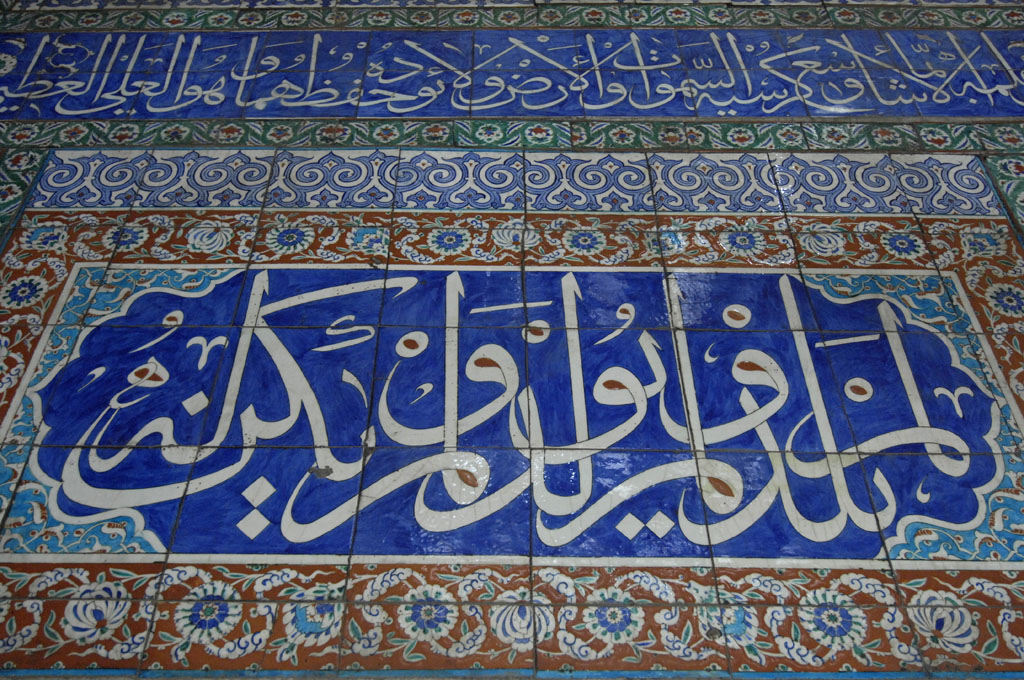 علمه الا بما شاء وسع كرسيه السموات والأرض ولا يؤده حفظهما وهو العلي العظيم
لم يلد ولم يولد ولم يكن له